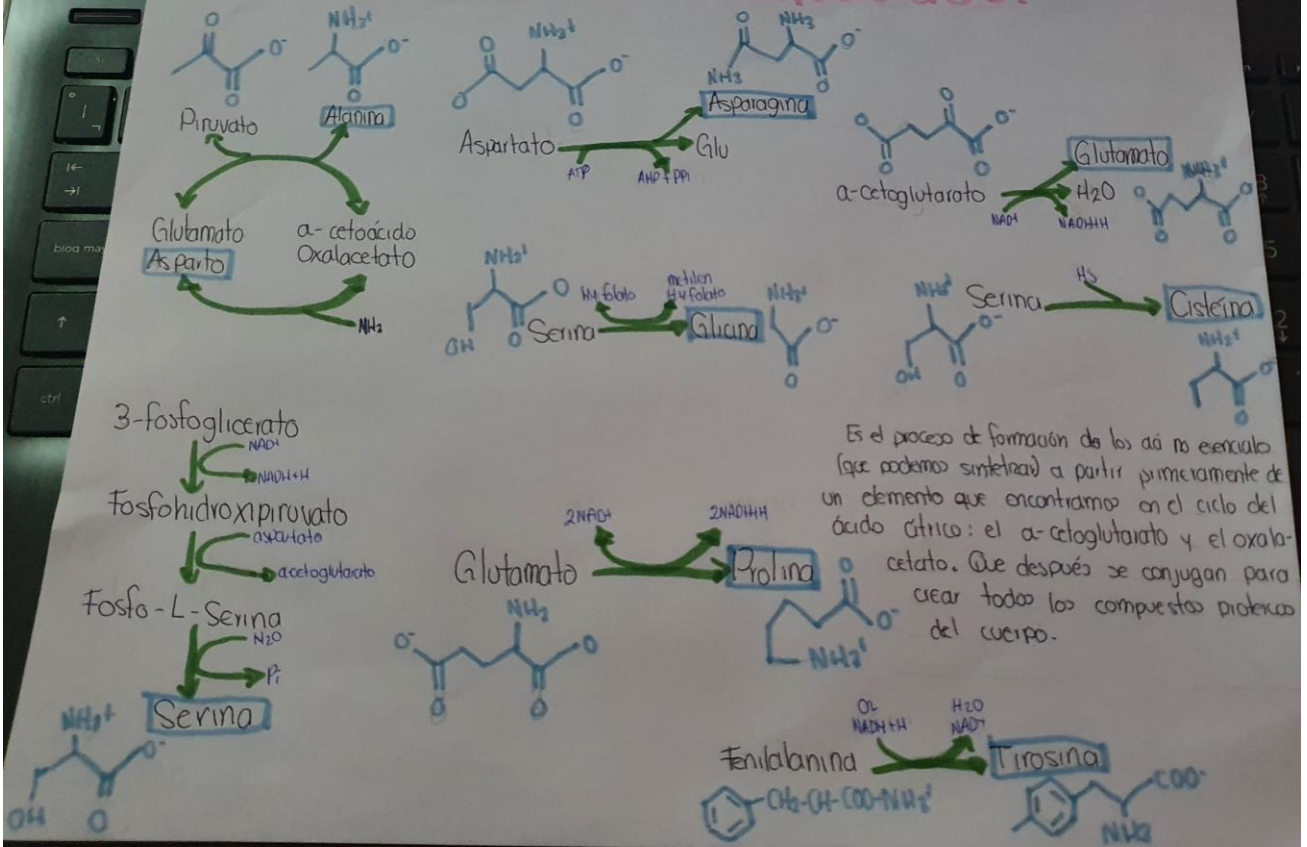 O
O⁻
O
Piruvato
NH₃⁺
O⁻
O
Alanina
Glutamato
Asparto
a-cetoácido
Oxalacetato
NH₂
O
O
NH₃⁺
O⁻
O
Aspartato
ATP
AMP+PPi
Glu
O
NH₃
NH₃
O⁻
O
Asparagina
O
O
O
O⁻
O
a-cetoglutarato
NAD+
NADH+H
H₂O
Glutamato
O
O
O
O
NH₃⁺
O
O
OH
Serina
H4 folato
metilen
H4 folato
Glicina
O⁻
O
O⁻
OH
O
Serina
HS
Cisteína
NH₃⁺
O
O
3-fosfoglicerato
NAD+
NADH+H
Fosfohidroxipiruvato
aspartato
acetoglutarato
Fosfo-L-Serina
H₂O
Pi
Serina
NH₃⁺
O⁻
OH
O
Glutamato
2NAD+
2NADH+H
Prolina
NH₂
O⁻
O
O
O
O
O⁻
NH₂⁺
Es el proceso de formación de los aá no esenciales
(que podemos sintetizar) a partir primeramente de
un elemento que encontramos en el ciclo del
ácido cítrico: el a-cetoglutarato y el oxala-
cetato. Que después se conjugan para
crear todos los compuestos proteicos
del cuerpo.
Fenilalanina
O₂
NADH+H
H₂O
NAD+
Tirosina
CH₂-CH-COO-NH₃⁺
COO⁻
NH₃
esc
bloq may
ctrl